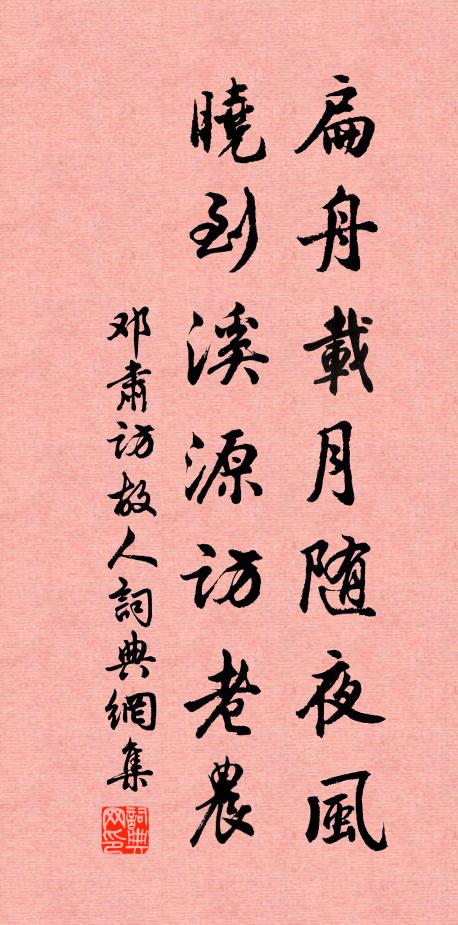 扁舟載月随夜風
曉到溪源訪老農
邓肅訪故人詞典網集
詞典网印